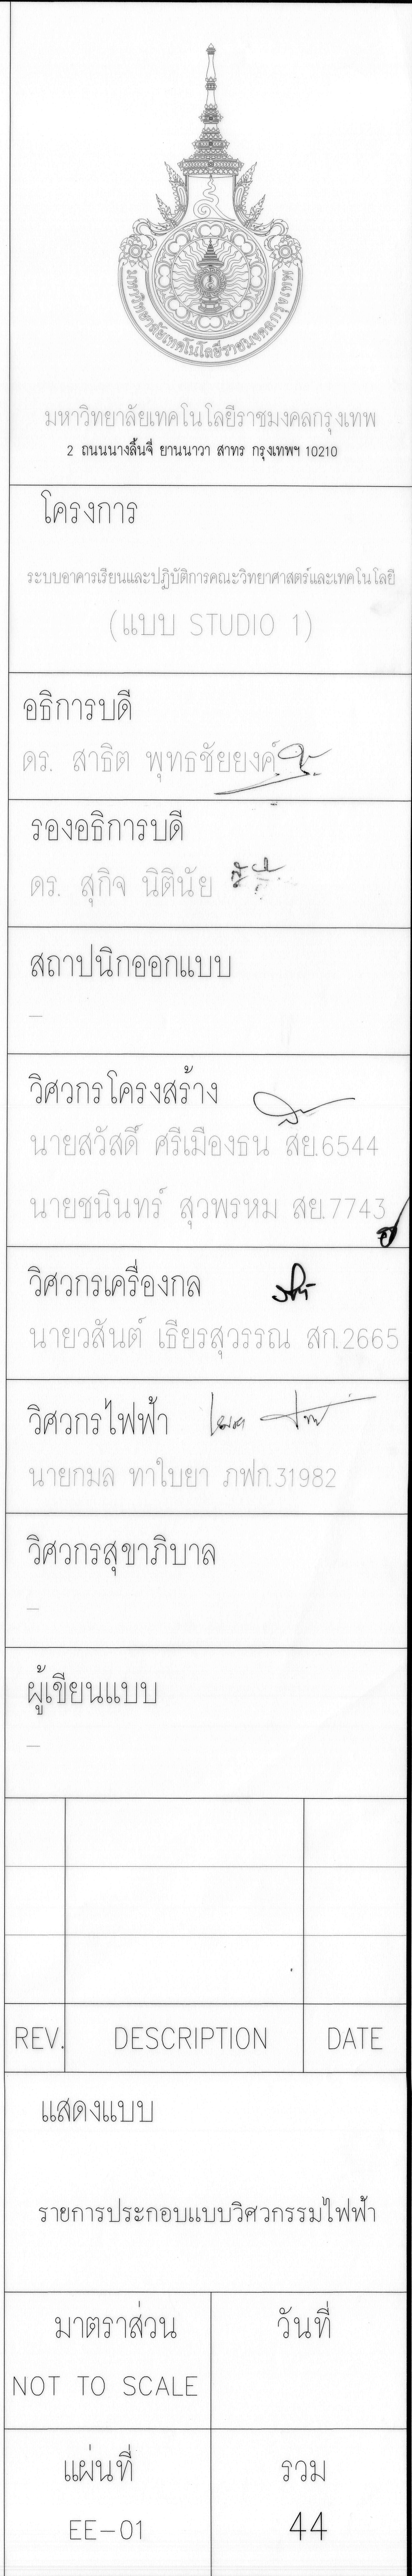 มหาวิทยาลัยเทคโนโลยีราชมงคลกรุงเทพ
มหาวิทยาลัยเทคโนโลยีราชมงคลกรุงเทพ
2 ถนนนางลิ้นจี่ ยานนาวา สาทร กรุงเทพฯ 10210
โครงการ
ระบบอาคารเรียนและปฏิบัติการคณะวิทยาศาสตร์และเทคโนโลยี
(แบบ STUDIO 1)
อธิการบดี
ดร. สาธิต พุทธชัยยงค์
รองอธิการบดี
ดร. สุกิจ นิตินัย
สถาปนิกออกแบบ
–
วิศวกรโครงสร้าง
นายสวัสดิ์ ศรีเมืองธน สย.6544
นายชนินทร์ สุวพรหม สย.7743
วิศวกรเครื่องกล
นายวสันต์ เธียรสุวรรณ สก.2665
วิศวกรไฟฟ้า
นายกมล ทาใบยา ภฟก.31982
วิศวกรสุขาภิบาล
–
ผู้เขียนแบบ
–
REV. DESCRIPTION DATE
แสดงแบบ
รายการประกอบแบบวิศวกรรมไฟฟ้า
มาตราส่วน วันที่
NOT TO SCALE
แผ่นที่ รวม
EE-01 44